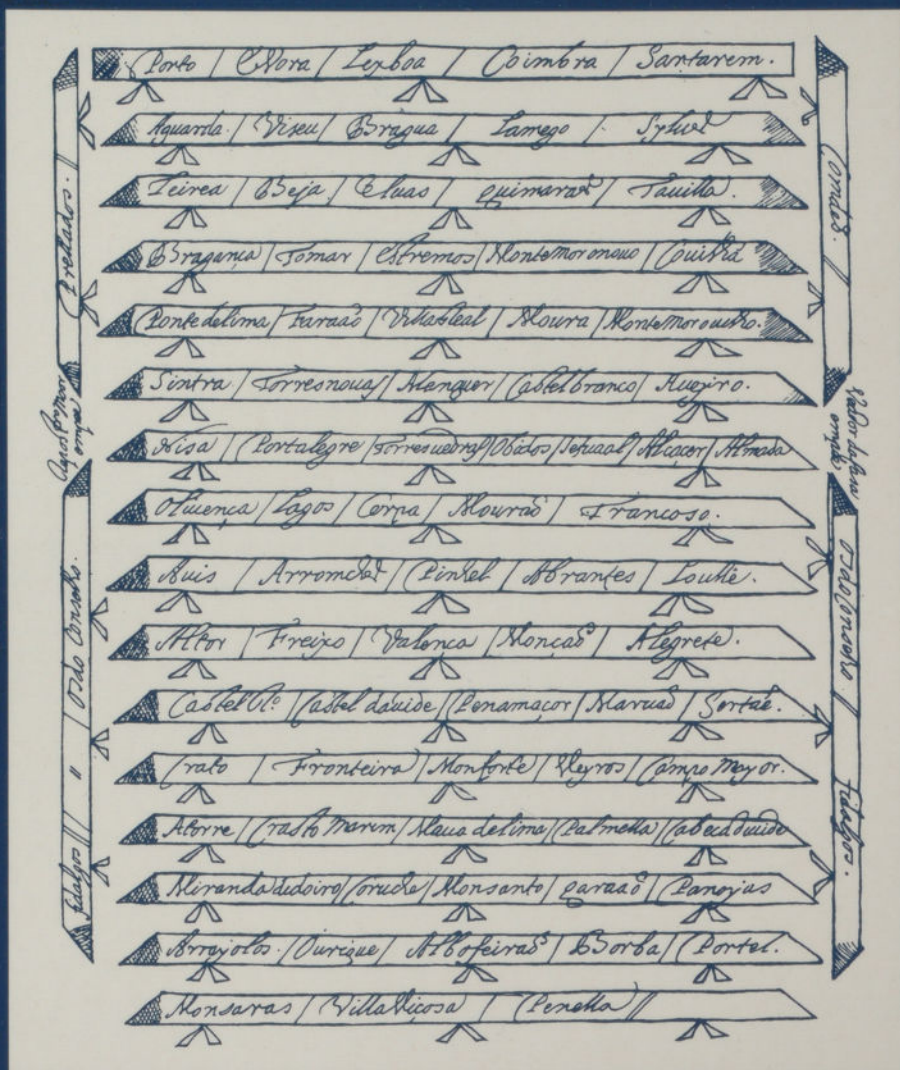 Porto / Evora / Lexboa / Coimbra / Santarem.
Aguarda. / Viseu / Bragua / Lamego / Sylues
Leirea / Beja / Eluas / guimaraes / Tauilla.
Bragança / Tomar / Estremos / Montemor onouo / Couilha
Ponte de lima / Faraaõ / Villa Real / Moura / Montemor ouelho.
Sintra / Torres nouas / Alenquer / Castel branco / Aueyro.
Nisa / Portalegre / Torres uedras / Obidos / Setuual / Alcaçer / Almada
Oliuença / Lagos / Cerpa / Mouraõ / Francoso.
Auis / Arronches / Pinhel / Abrantes / Loulle.
Alter / Freixo / Valença / Monçaõ / Alegrete.
Castel Rº / Castel dauide / Penamaçor / Maruaõ / Sertaẽ.
Crato / Fronteira / Monforte / Veyros / Campo Mayor.
Atorre / Crasto Marim / Maua delima / Palmella / Cabeca deuide
Miranda dedoiro / Coruche / Monsanto / garaaõ / Panojas
Arrayolos. / Ourique / Albofeira / Borba / Portel.
Monsaras / Villa Viçosa / Penella //
Prellados. //
Osdo Conselho.
fidalgos //
Condes. //
Osdo Conselho. //
Fidalgos.